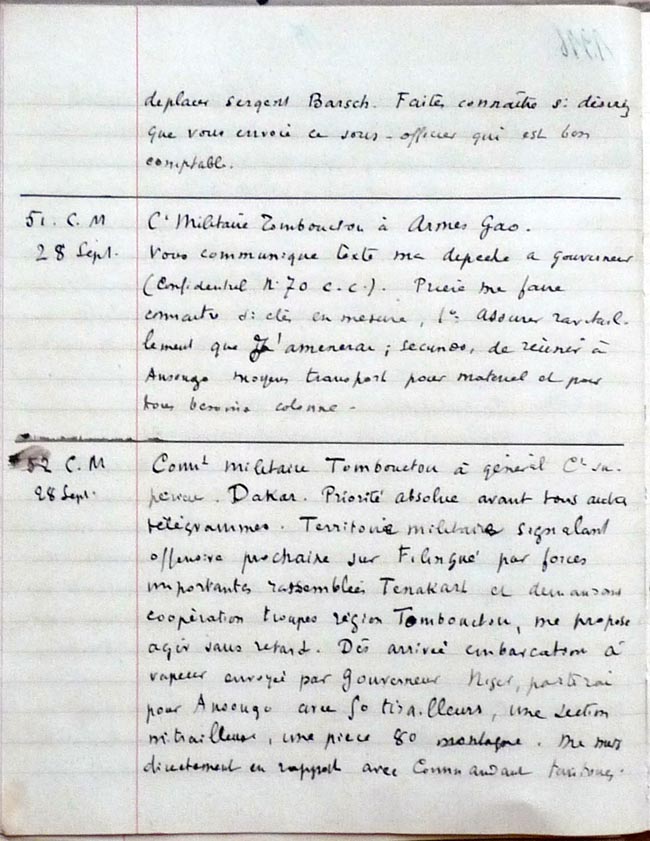 deplacer sergent Barsch. Faites connaître si désirez
que vous envoie ce sous-officier qui est bon
comptable.
51. C. M
28 Sept.
Ct Militaire Tombouctou à Armes Gao.
Vous communique texte ma depeche a gouverneur
(Confidentiel No 70 c.c.). Prière me faire
connaitre si êtes en mesure, 1o: assurer ravitail-
lement que j'amenerai; secundo, de réunir à
Ansongo moyens transport pour materiel et pour
tous besoins colonne -
52 C. M
28 Sept.
Commt militaire Tombouctou à général Ct su-
perieur. Dakar. Priorité absolue avant tous autres
télégrammes. Territoire militaire signalant
offensive prochaine sur Filingué par forces
importantes rassemblées Tenakart et demandant
coopération troupes région Tombouctou, me propose
agir sans retard. Dès arrivée embarcation à
vapeur envoyée par Gouverneur Niger, partirai
pour Ansongo avec 50 tirailleurs, une section
mitrailleuse, une pièce 80 montagne. Me mets
directement en rapport avec Commandant